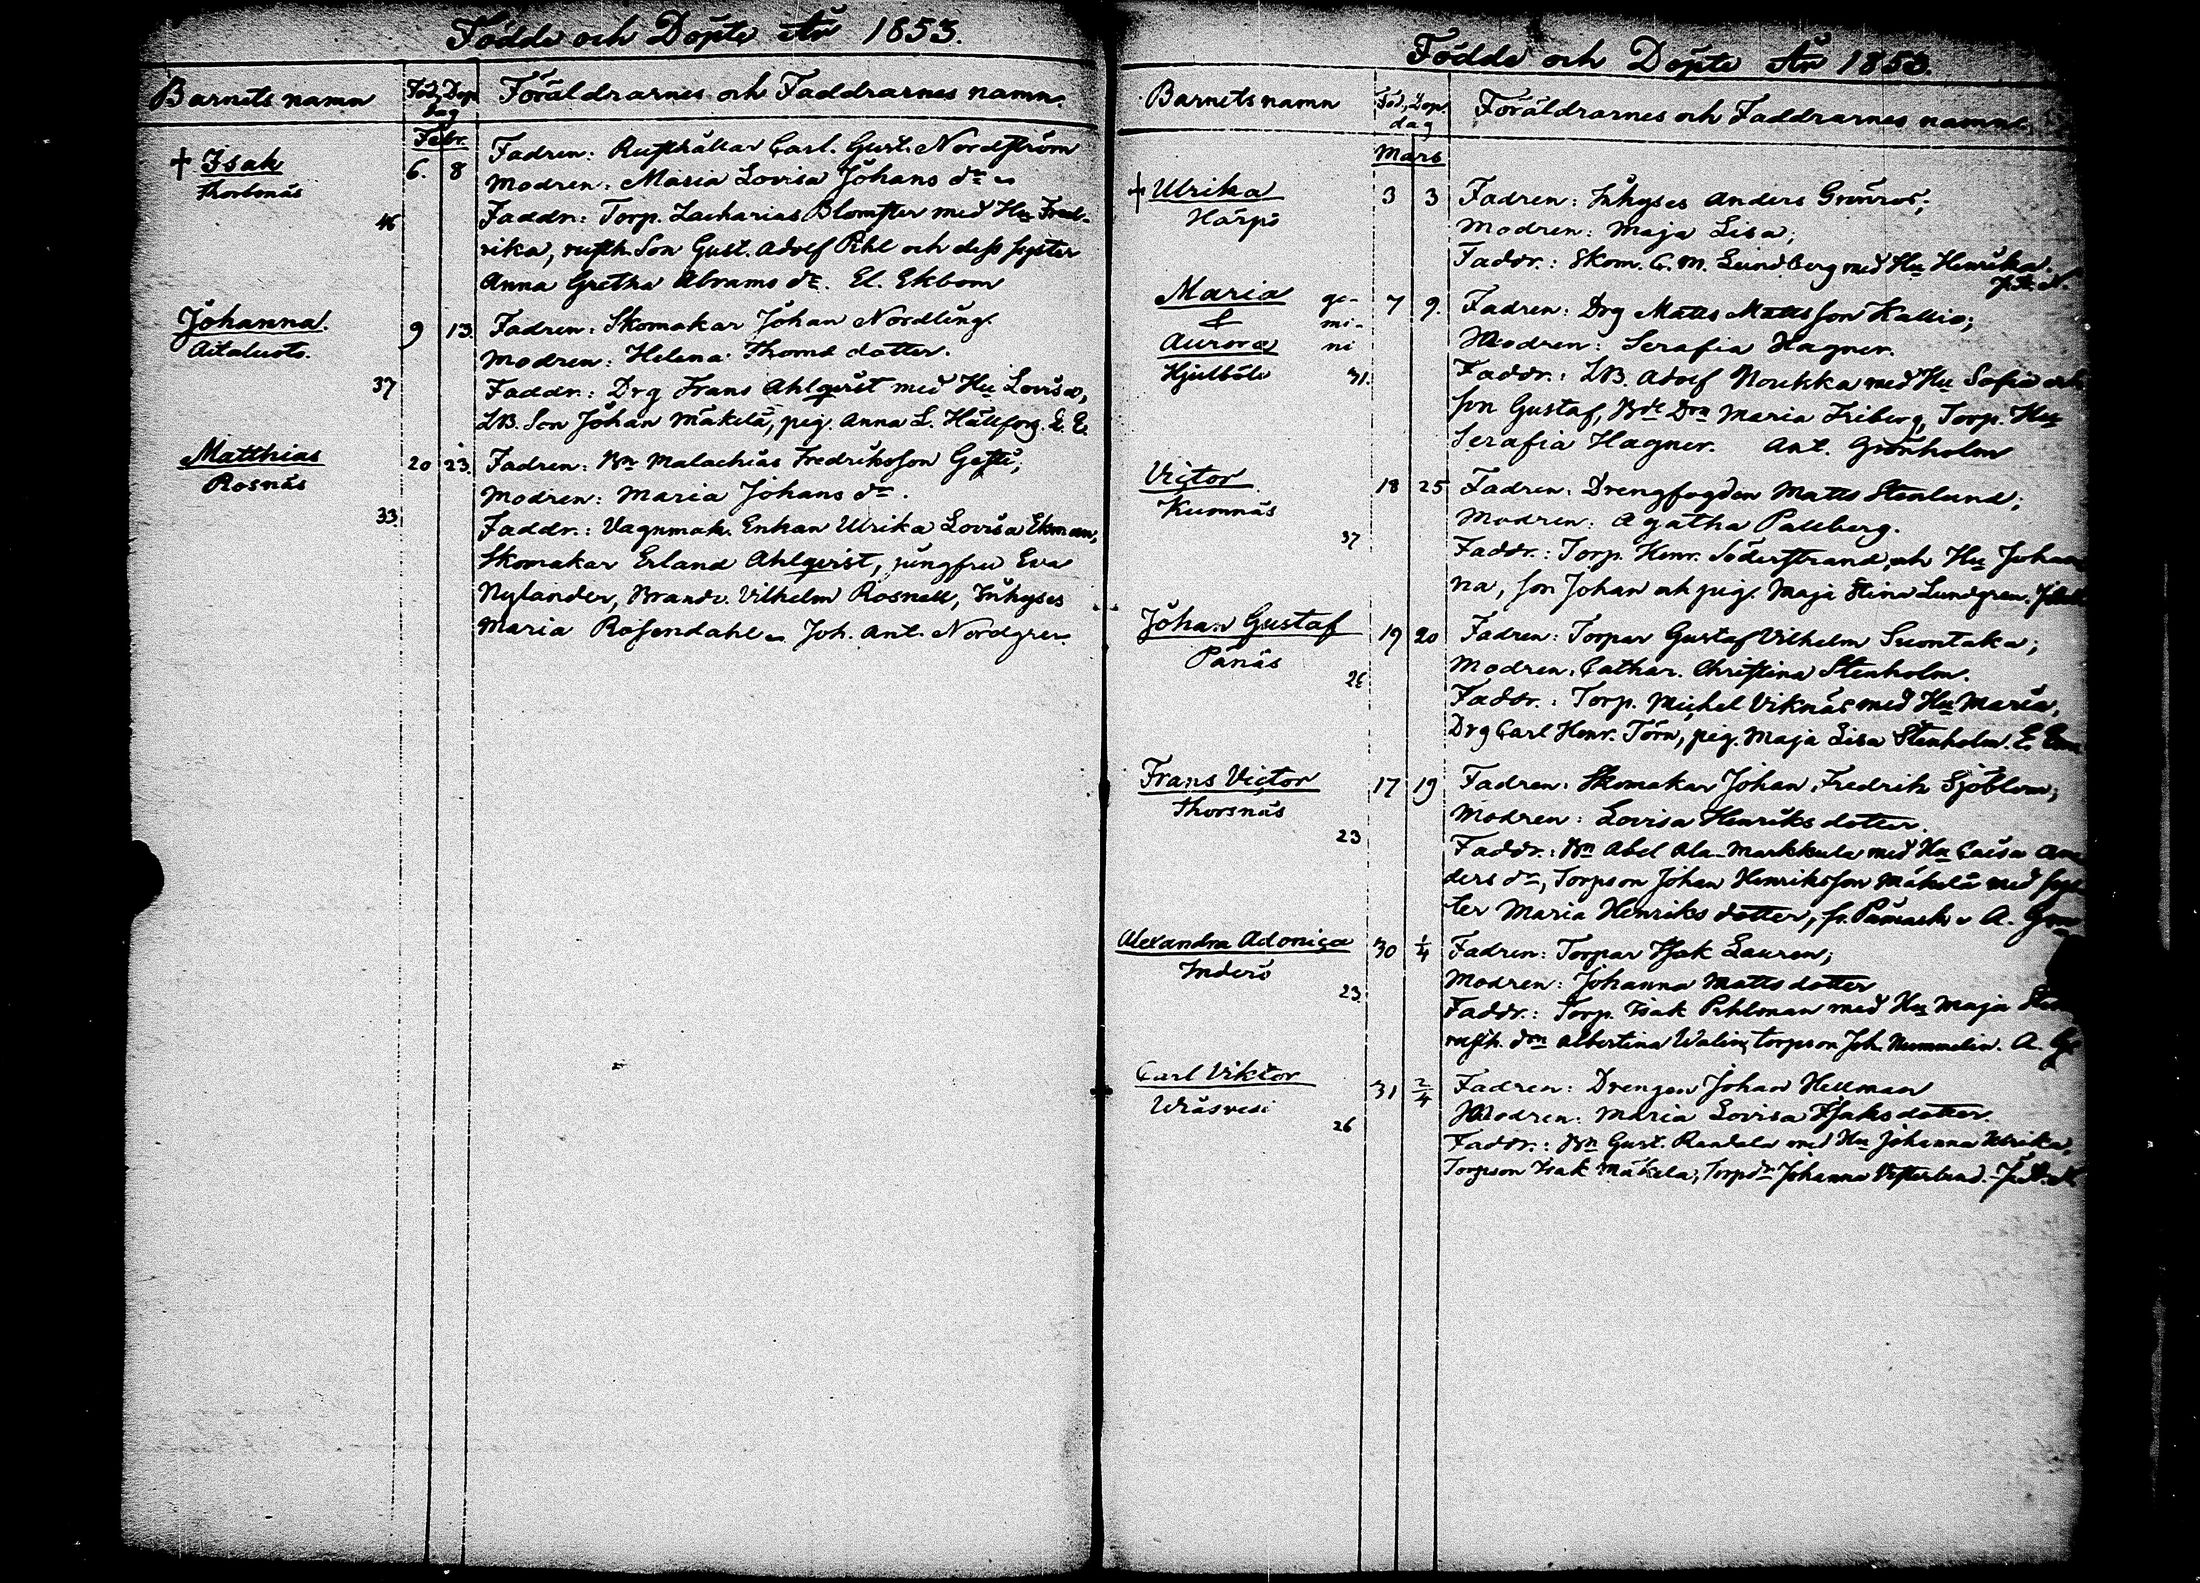 Födde och Döpte År 1853.
Barnets namn
Föd. Döp.
dag
Föräldrarnes och Faddrarnes namn.
Febr.
† Isak
Thorbonäs
46
6. 8
Fadren: Rusthållar Carl. Gust. Nordström
Modren: Maria Lovisa Johans dr
Faddr: Torp. Zacharias Blomster med Hu Fred-
rika, rusth. Son Gust. Adolf Pihl och dess syster
Anna Gretha Abrams dr. El. Ekbom
Johanna.
Aitaluoto.
37
9 13.
Fadren: Skomakar Johan Nordling.
Modren: Helena Thomæ dotter.
Faddr: Drg Frans Ahlqvist med Hu Lovisa,
LB. Son Johan Mäkelä, pig. Anna L. Hällfors. E. E.
Matthias
Rosnäs
33.
20 23.
Fadren: Bn Malachias Fredriksson
Modren: Maria Johans dr.
Faddr: Vagnmak. Enkan Ulrika Lovisa Ekman,
Skomakar Erland Ahlqvist, jungfru Eva
Nylander, Brandv. Vilhelm Rosnell, Inhyses
Maria Rosendahl Joh. Ant. Nordgren
Födde och Döpte År 1853.
Barnets namn
Föd. Döp.
dag
Föräldrarnes och Faddrarnes namn.
Mars
† Ulrika
Harpö
3 3
Fadren: Inhyses Anders Grönroos;
Modren: Maja Lisa;
Faddr.: Skom. C. M. Lundberg med Hu Henrika.
Maria ge-
& mi-
Aurora ni
Hjulböle 31.
7 9.
Fadren: Drg Matts Mattsson Kallio;
Modren: Serafia Hagner.
Faddr.: LB. Adolf Noukka med Hu Sofia och
son Gustaf, Bde Drn Maria Friberg, Torp. Hu
Serafia Hagner. Ant. Grönholm
Victor
Kumnäs
37
18 25
Fadren: Drengfogden Matts Stenlund;
Modren: Agatha Pallberg.
Faddr.: Torp. Henr. Söderstrand och Hu Johan
na, son Johan och pig. Maja Stina Lundgren.
Johan Gustaf
Pånäs
26
19 20
Fadren: Torpar Gustaf Vilhelm Suontaka;
Modren: Cathar. Christina Stenholm.
Faddr.: Torp. Michel Viknäs med Hu Maria,
Drg Carl Henr. Törn, pig. Maja Lisa Stenholm. E.
Frans Victor
Thorsnäs
23
17 19
Fadren: Skomakar Johan Fredrik Sjöblom;
Modren: Lovisa Henriks dotter.
Faddr.: Bn Abel Ala-Markkula med Hu Caisa An
ders dr, Torpson Johan Henriksson Mäkelä med sys
ter Maria Henriks dotter, fr. Påmark A.
Alexandra Adonica
Inderö
23.
30 1/4
Fadren: Torpar Isak Lauren;
Modren: Johanna Matts dotter
Faddr.: Torp. Isak Pihlman med Hu Maja
rusth. drn Albertina Walin, torpson Joh. Nummelin. A.
Carl Viktor
Wråsvesi
26
31 2/4
Fadren: Drengen Johan Hellman
Modren: Maria Lovisa Isaks dotter.
Faddr.: Bn Gust. Randala med Hu Johanna Ulrika,
Torpson Isak Mäkelä, Torpdr Johanna Vesterlund.